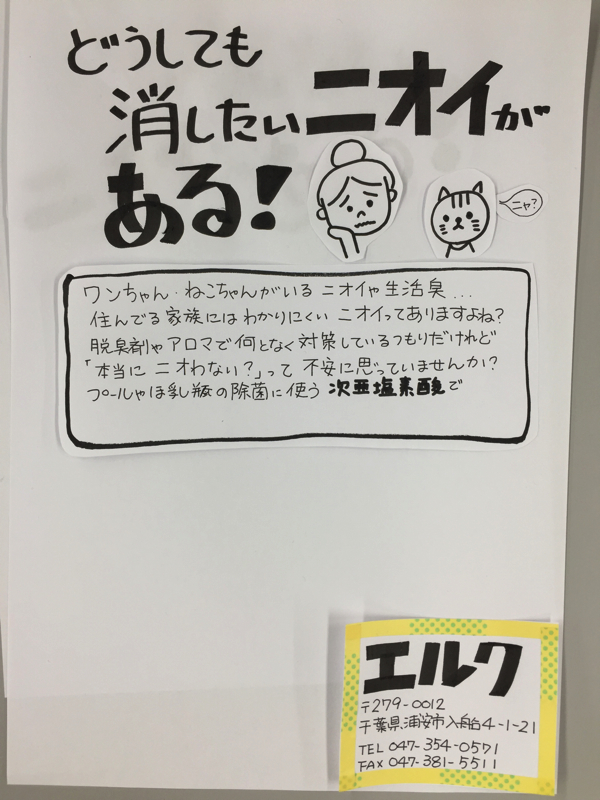 どうしても
消したいニオイが
ある!
ニャ?
ワンちゃん・ねこちゃんがいるニオイや生活臭...
住んでる家族にはわかりにくいニオイってありますよね?
脱臭剤やアロマで何となく対策しているつもりだけれど
「本当にニオわない?」って不安に思っていませんか?
プールやほ乳瓶の除菌に使う次亜塩素酸で
エルク
〒279-0012
千葉県浦安市入船4-1-21
TEL 047-354-0571
FAX 047-381-5511